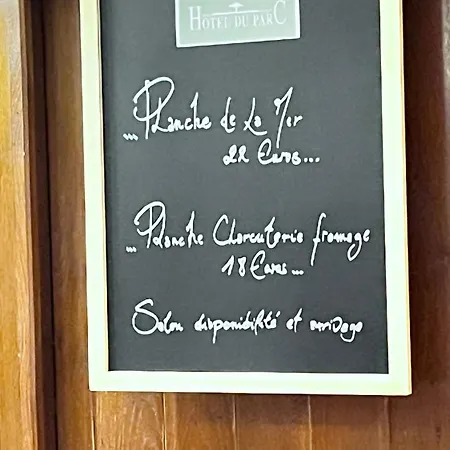 HÔTEL DU PARC
... Planche de La Mer
22 Euros...
... Planche Charcuterie fromage
18 Euros...
Selon disponibilité et arrivage